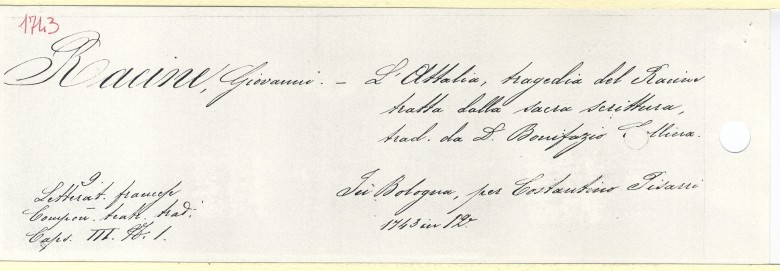 1743
Racine, Giovanni. – L'Attalia, tragedia del Racine
tratta dalla sacra scrittura,
trad. da D. Bonifazio
In Bologna, per Costantino Pisarri
1743 in 12.
9.
Letterat. francese
Compon. teatr. trad.
Caps. III. N. 1.